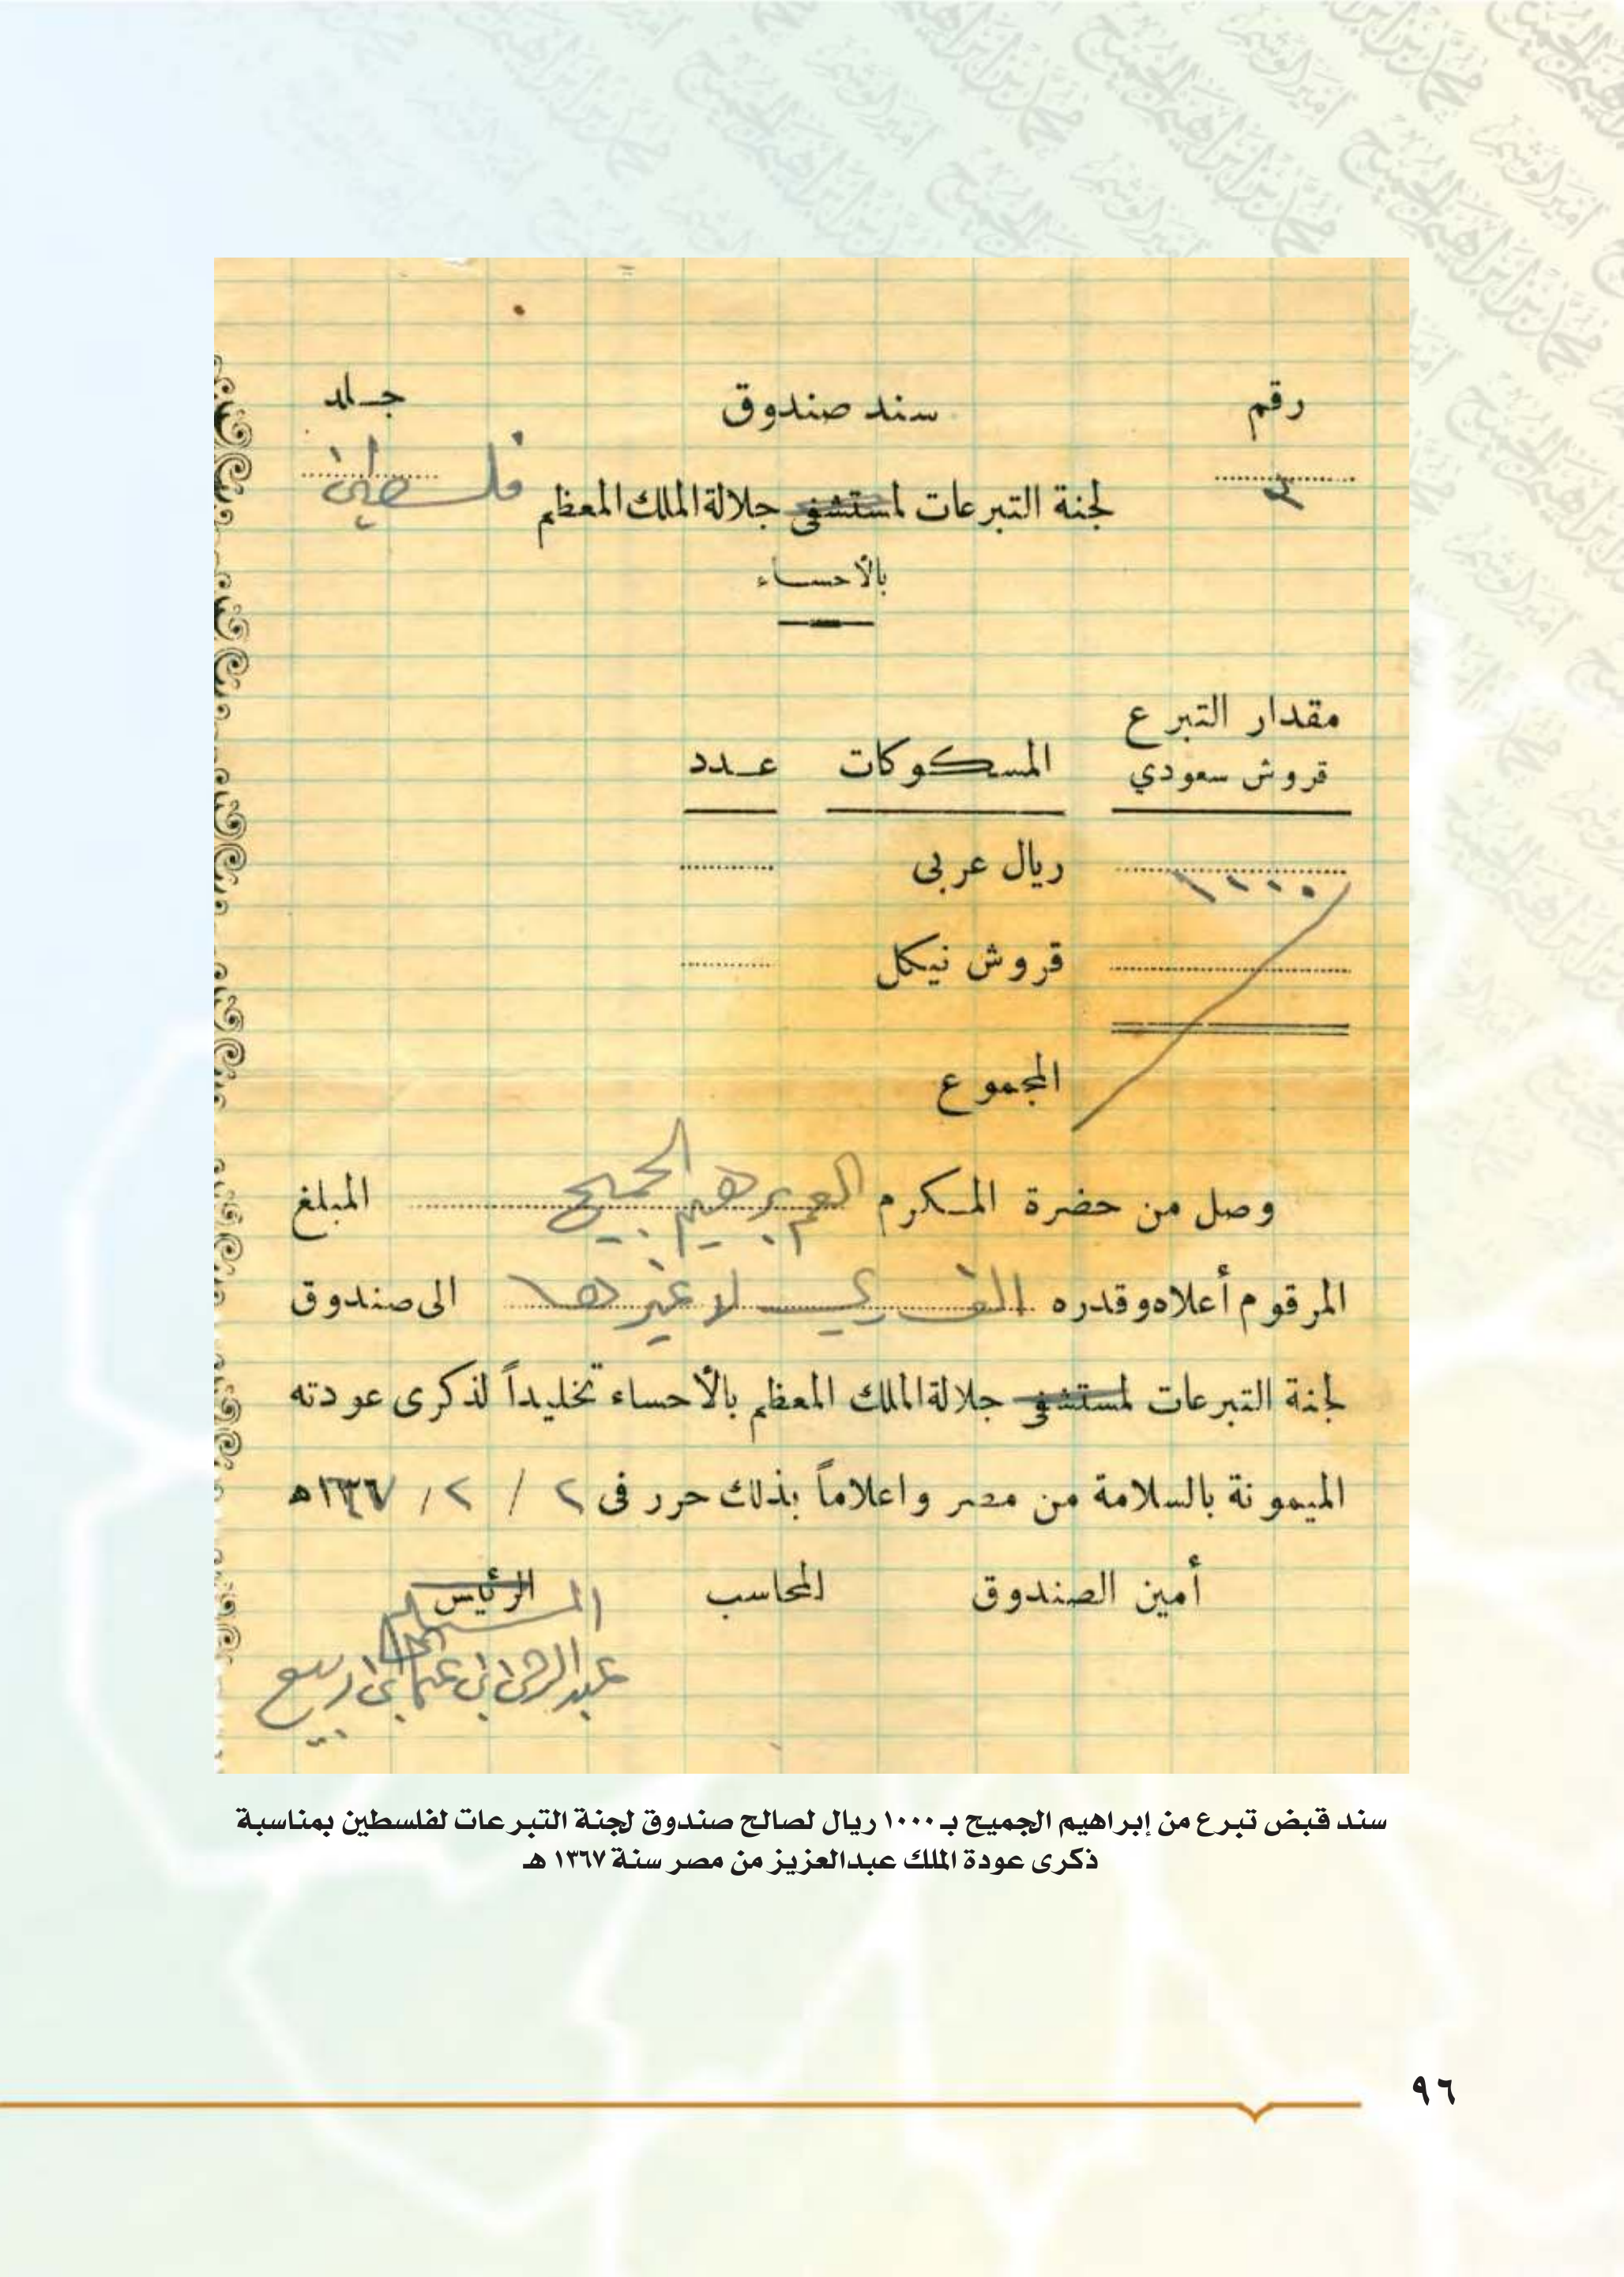 رقم سند صندوق جلد
٣ لجنة التبرعات لمستشفى جلالة الملك المعظم فلسطين
بالأحساء
مقدار التبرع
قروش سعودي المسكوكات عدد
١٠٠٠ ريال عربى
قروش نيكل
المجموع
وصل من حضرة المكرم العم ابرهيم الجميح المبلغ
المرقوم أعلاه وقدره الف ريال لا غيرها الى صندوق
لجنة التبرعات لمستشفى جلالة الملك المعظم بالأحساء تخليداً لذكرى عودته
الميمونة بالسلامة من مصر واعلاماً بذلك حرر فى ٢ / ٢ / ١٣٦٧ه
أمين الصندوق المحاسب الرئيس
المستلم
عبدالرحمن ابن عثمان ابن ربيع
سند قبض تبرع من إبراهيم الجميح بـ ١٠٠٠ ريال لصالح صندوق لجنة التبرعات لفلسطين بمناسبة
ذكرى عودة الملك عبدالعزيز من مصر سنة ١٣٦٧ هـ
٩٦